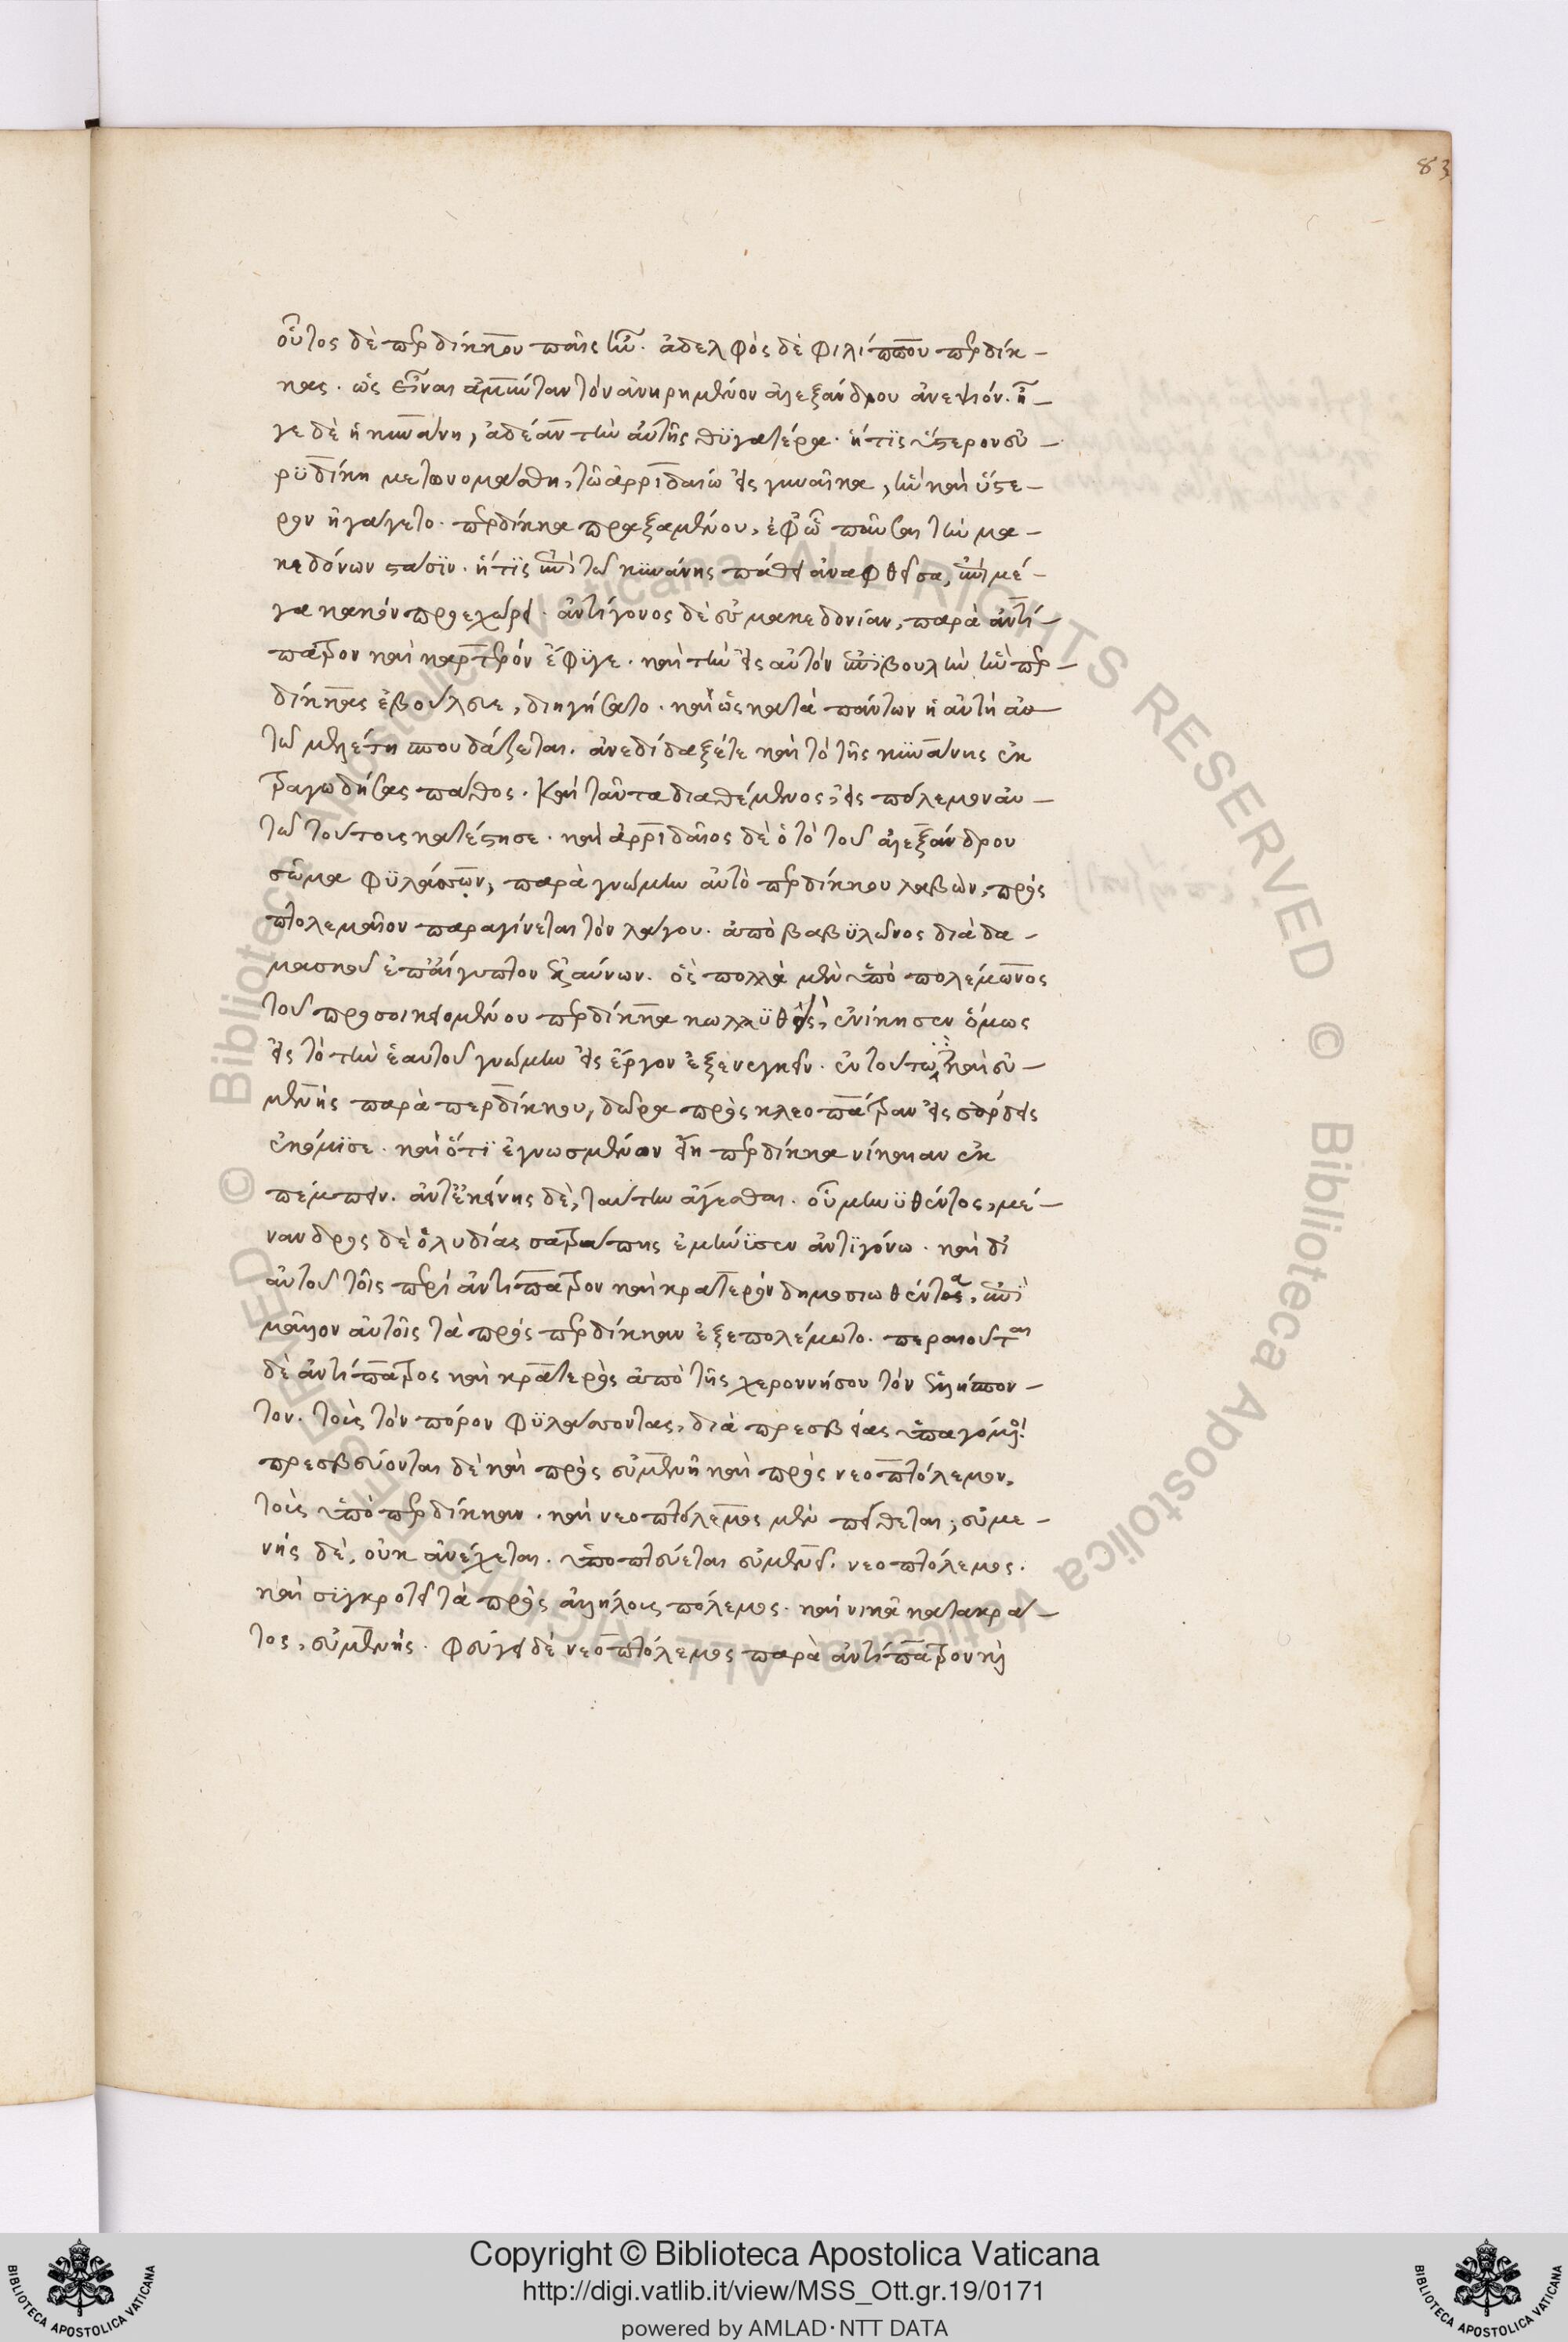 83
οὗτος δὲ περδίκκου παῖς ἦν. ἀδελφὸς δὲ φιλίππου περδίκ-
κας. ὡς εἶναι ἀμύνταν τὸν ἀνῃρημένον ἀλεξάνδρου ἀνεψιόν. ἦ-
γε δὲ ἡ κυνάνη, ἀδέαν τὴν αὐτῆς θυγατέρα. ἥτις ὕστερον εὐ-
ρυδίκη μετωνομάσθη, τῷ ἀρριδαίῳ εἰς γυναῖκα, ἣν καὶ ὕστε-
ρον ἠγάγετο. περδίκκα πραξαμένου, ἐφ' ᾧ παῦσαι τὴν μα-
κεδόνων στάσιν. ἥτις ἐπὶ τῷ κυνάνης πάθει ἀναφθεῖσα, ἐπὶ μέ-
γα κακὸν προεχώρει. ἀντίγονος δὲ εὐ μακεδονίαν, παρὰ ἀντί-
πατρον καὶ καρτερὸν ἔφυγε. καὶ τὴν εἰς αὐτὸν ἐπιβουλὴν ἣν περ-
δίκκας ἐβούλευε, διηγήσατο. καὶ ὡς κατὰ πάντων ἡ αὐτὴ αὐ-
τῷ μελέτη σπουδάζεται. ἀνεδίδαξέ τε καὶ τὸ τῆς κυνάνης ἐκ
τραγωδήσας πάθος. καὶ ταῦτα διαθέμενος, εἰς πόλεμον αὐ-
τῷ τούτοις κατέστησε. καὶ ἀρριδαῖος δὲ ὁ τὸ τοῦ ἀλεξάνδρου
σῶμα φυλάσσων, παρὰ γνώμην αὐτὸ περδίκκου λαβὼν, πρὸς
πτολεμαῖον παραγίνεται τὸν λάγου. ἀπὸ βαβυλῶνος διὰ δα-
μασκοῦ ἐπ' αἴγυπτον ἐλαύνων. ὃς πολλὰ μὲν ὑπὸ πολέμωνος
τοῦ προσοικειομένου περδίκκα κωλυθεὶς, ἐνίκησεν ὅμως
εἰς τὸ τὴν ἑαυτοῦ γνώμην εἰς ἔργον ἐξενεγκεῖν. ἐν τούτῳ καὶ εὐ-
μένης παρὰ περδίκκου, δῶρα πρὸς κλεοπάτραν εἰς σάρδεις
ἐκόμισε. καὶ ὅτι ἐγνωσμένον εἴη περδίκκα νίκαιαν ἐκ
πέμπειν. ἀντ' ἐκείνης δὲ, ταύτην ἄγεσθαι. οὗ μηνυθέντος, μέ-
νανδρος δὲ ὁ λυδίας σατράπης ἐμήνυσεν ἀντιγόνῳ. καὶ δι'
αὐτοῦ τοῖς περὶ ἀντίπατρον καὶ κρατερὸν δημοσιωθέντος, ἐπὶ
μᾶλλον αὐτοῖς τὰ πρὸς περδίκκαν ἐξεπολέμωτο. περαιοῦται
δὲ ἀντίπατρος καὶ κρατερὸς ἀπὸ τῆς χερονήσου τὸν ἑλλήσπον-
τον. τοὺς τὸν πόρον φυλάσσοντας, διὰ πρεσβείας ὑπαγόμενοι.
πρεσβεύονται δὲ καὶ πρὸς εὐμένη καὶ πρὸς νεοπτόλεμον,
τοὺς ὑπὸ περδίκκαν. καὶ νεοπτόλεμος μὲν πείθεται, εὐμέ-
νης δὲ, οὐκ ἀνέχεται. ὑποπτεύεται εὐμένει. νεοπτόλεμος.
καὶ συγκροτεῖται πρὸς ἀλλήλοις πόλεμος. καὶ νικᾷ κατακρά-
τος, εὐμένης. φεύγει δὲ νεοπτόλεμος παρὰ ἀντίπατρον καὶ
© Biblioteca Apostolica Vaticana ALL RIGHTS RESERVED
Copyright © Biblioteca Apostolica Vaticana
http://digi.vatlib.it/view/MSS_Ott.gr.19/0171
powered by AMLAD·NTT DATA
BIBLIOTECA APOSTOLICA VATICANA
BIBLIOTECA APOSTOLICA VATICANA